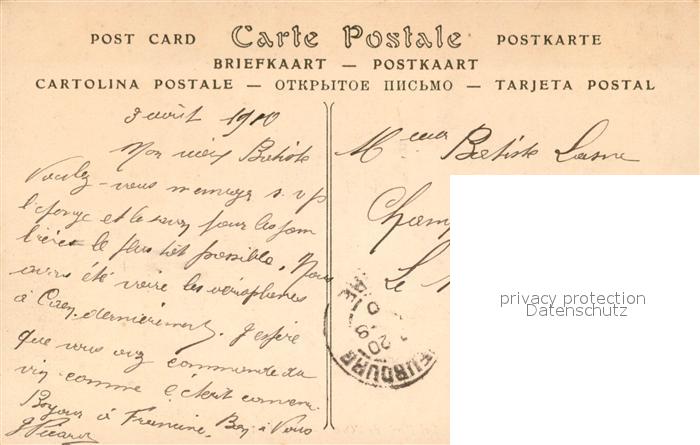 POST CARD Carte Postale POSTKARTE
BRIEFKAART — POSTKAART
CARTOLINA POSTALE — ОТКРЫТОЕ ПИСЬМО — TARJETA POSTAL
3 août 1910
Mon vieux Batiste
Voulez-vous m'envoyer s.v.p
l'éponge et le savon pour les
le plus tôt possible. Nous
avons été voire les aéroplanes
à Caen dernièrement. J'espère
que vous avez commandé du
vin comme c'était convenu
Bonjour à Francine. Bon à Vous
J Picard
Batiste
Le
privacy protection
Datenschutz